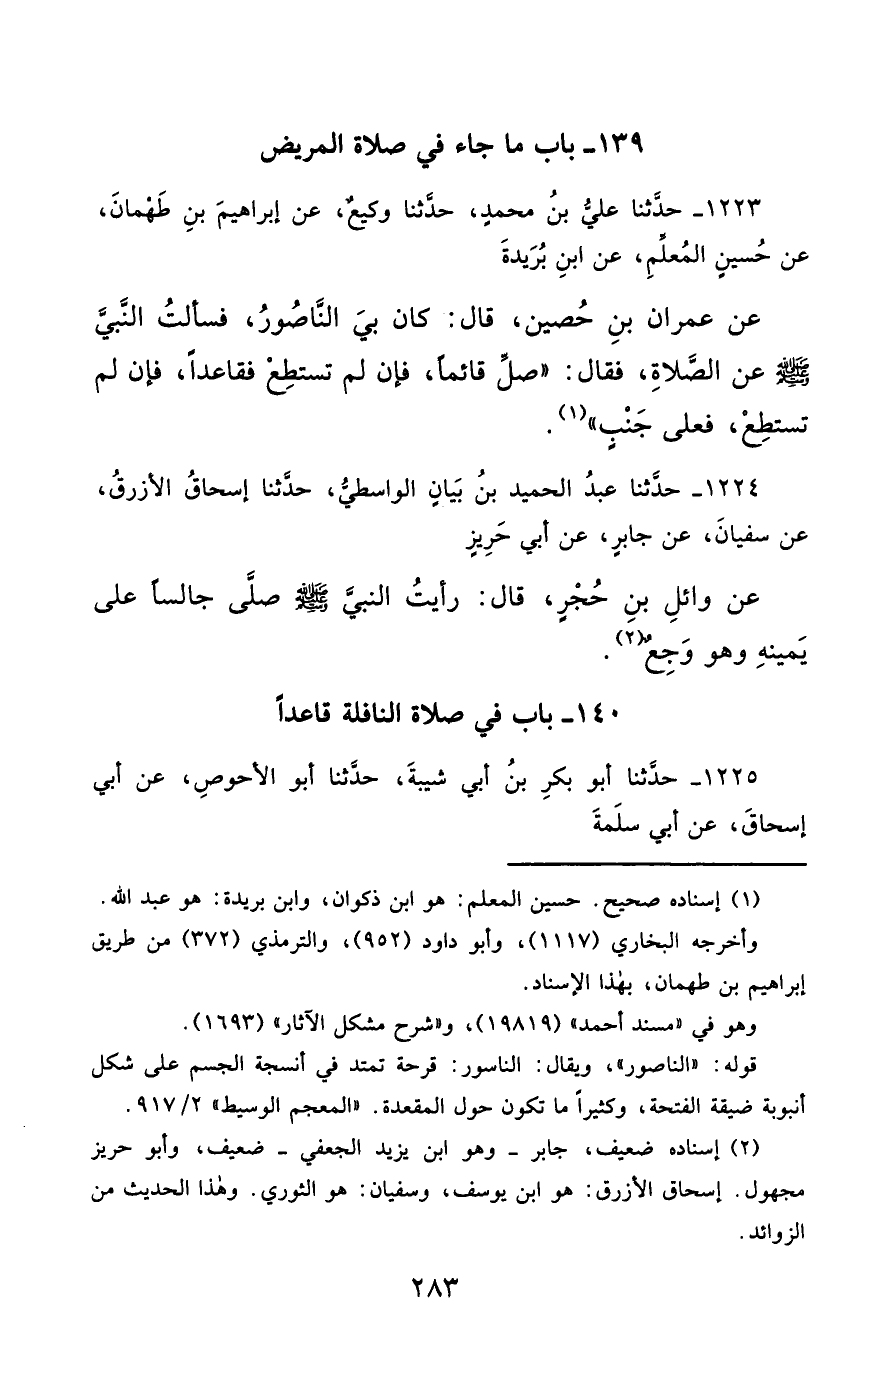 ١٣٩ـ باب ما جاء في صلاة المريض
١٢٢٣ـ حدَّثنا عليُّ بنُ محمدٍ، حدَّثنا وكيعٌ، عن إبراهيمَ بنِ طَهْمانَ،
عن حُسينٍ المُعلِّمِ، عن ابنِ بُرَيدةَ
عن عمران بنِ حُصين، قال: كان بيَ النَّاصُورُ، فسألتُ النَّبيَّ
ﷺ عن الصَّلاةِ، فقال: «صلِّ قائماً، فإن لم تستطِعْ فقاعداً، فإن لم
تستطِعْ، فعلى جَنْبٍ»(١).
١٢٢٤ـ حدَّثنا عبدُ الحميد بنُ بَيَانٍ الواسطيُّ، حدَّثنا إسحاقُ الأزرقُ،
عن سفيانَ، عن جابرٍ، عن أبي حَرِيزٍ
عن وائلِ بنِ حُجْرٍ، قال: رأيتُ النبيَّ ﷺ صلَّى جالساً على
يَمينهِ وهو وَجِعٌ(٢).
١٤٠ـ باب في صلاة النافلة قاعداً
١٢٢٥ـ حدَّثنا أبو بكرِ بنُ أبي شيبةَ، حدَّثنا أبو الأحوصِ، عن أبي
إسحاقَ، عن أبي سلَمةَ
(١) إسناده صحيح. حسين المعلم: هو ابن ذكوان، وابن بريدة: هو عبد الله.
وأخرجه البخاري (١١١٧)، وأبو داود (٩٥٢)، والترمذي (٣٧٢) من طريق
إبراهيم بن طهمان، بهٰذا الإسناد.
وهو في «مسند أحمد» (١٩٨١٩)، و«شرح مشكل الآثار» (١٦٩٣).
قوله: «الناصور»، ويقال: الناسور: قرحة تمتد في أنسجة الجسم على شكل
أنبوبة ضيقة الفتحة، وكثيراً ما تكون حول المقعدة. «المعجم الوسيط» ٩١٧/٢.
(٢) إسناده ضعيف، جابر ـ وهو ابن يزيد الجعفي ـ ضعيف، وأبو حريز
مجهول. إسحاق الأزرق: هو ابن يوسف، وسفيان: هو الثوري. وهٰذا الحديث من
الزوائد.
٢٨٣